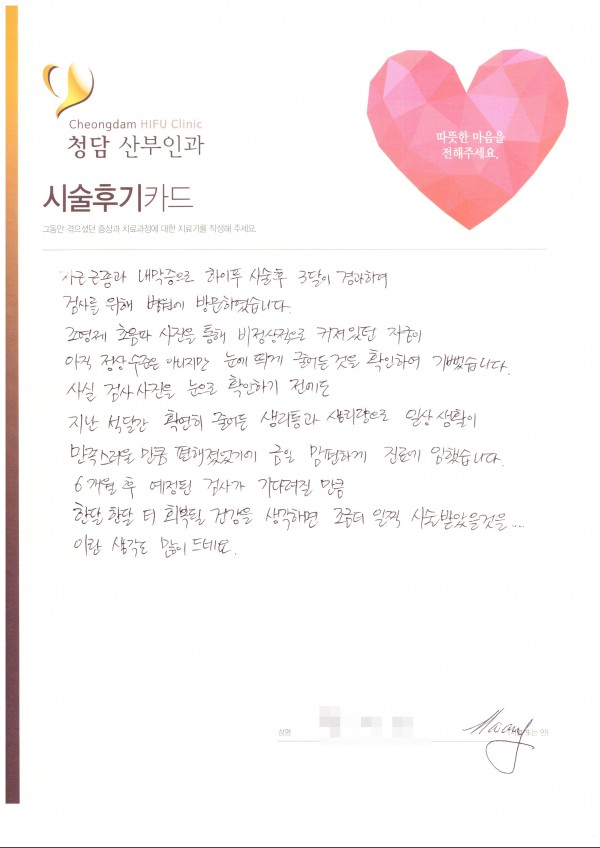 따뜻한 마음을
전해주세요.
Cheongdam HIFU Clinic
청담 산부인과
시술후기카드
그동안 겪으셨던 증상과 치료과정에 대한 치료기를 작성해 주세요.
자근근종과 내막증으로 하이푸 시술후 3달이 경과하여
검사를 위해 병원에 방문하였습니다.
조영제 초음파 사진을 통해 비정상적으로 커져있던 자궁이
아직 정상수준은 아니지만 눈에 띄게 줄어든것을 확인하여 기뻤습니다.
사실 검사사진을 눈으로 확인하기 전에도
지난 석달간 확연히 줄어든 생리통과 생리량으로 일상생활이
만족스러울 만큼 편해졌었기에 금일 맘편하게 진료에 임했습니다.
6개월 후 예정된 검사가 기다려질 만큼
한달 한달 더 회복될 건강을 생각하면 조금더 일찍 시술받았을것을...
이란 생각도 많이 드네요.
성명
또는 인)